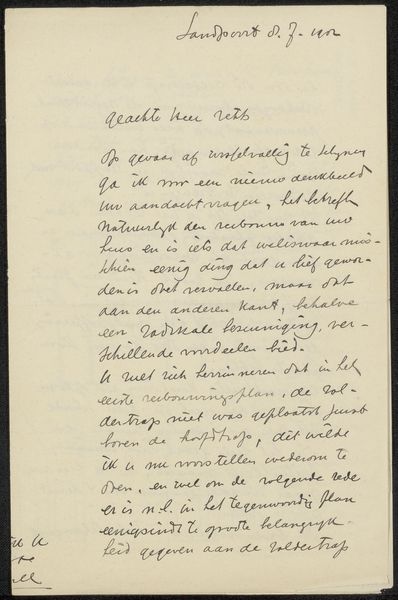 Sandpoort 8.7.1902
Geachte Heer Veth
Op gevaar af wisselvallig te schijnen
ga ik voor een nieuw denkbeeld
uw aandacht vragen, het betreft
natuurlijk den verbouw van uw
huis en is iets dat weliswaar mis-
schien eenig ding dat u lief gewor-
den is doet vervallen, maar dat
aan den anderen kant, behalve
een radikale bezuiniging, ver-
schillende voordeelen bied.
U zult zich herrinneren dat in het
eerste verbouwingsplan, de zol-
dertrap niet was geplaatst juist
boven de hoofdtrap, dit wilde
ik u nu voorstellen wederom te
doen, en wel om de volgende rede
er is n.l. in het tegenwoordig plan
eenigszindt te groote belangrijk-
heid gegeven aan de zoldertrap